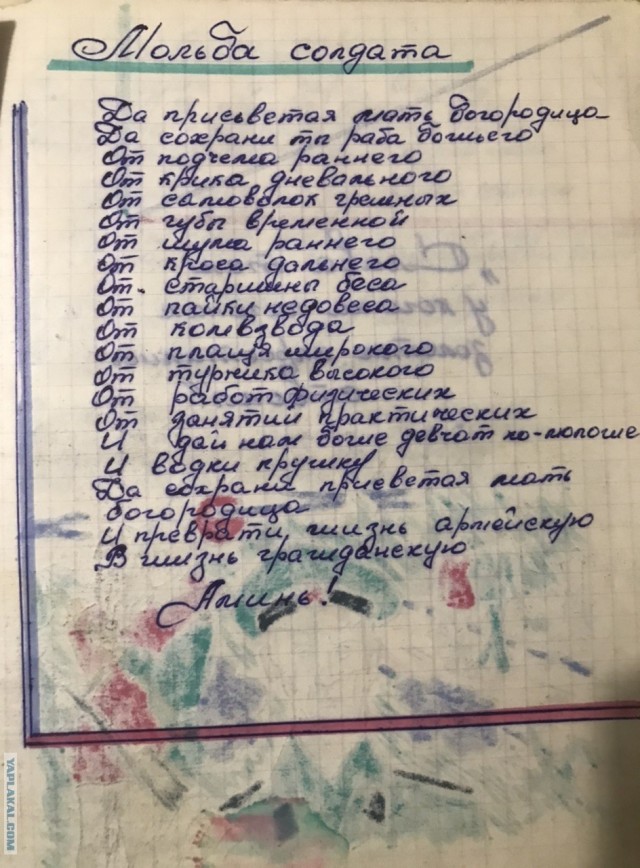 Мольба солдата
Да присьветая мать богородица
Да сохрани ты раба божьего
От подъема раннего
От крика дневального
От самоволок грешных
От губы временной
От шума раннего
От кроса дальнего
От старшины беса
От пайки недовеса
От комвзвода
От плаща широкого
От турника высокого
От работ физических
От занятий практических
И дай нам боже девчат по-плоше
И водки кружку
Да сохрани присветая мать
богородица
И преврати жизнь армейскую
В жизнь гражданскую
Аминь!
YAPLAKAL.COM